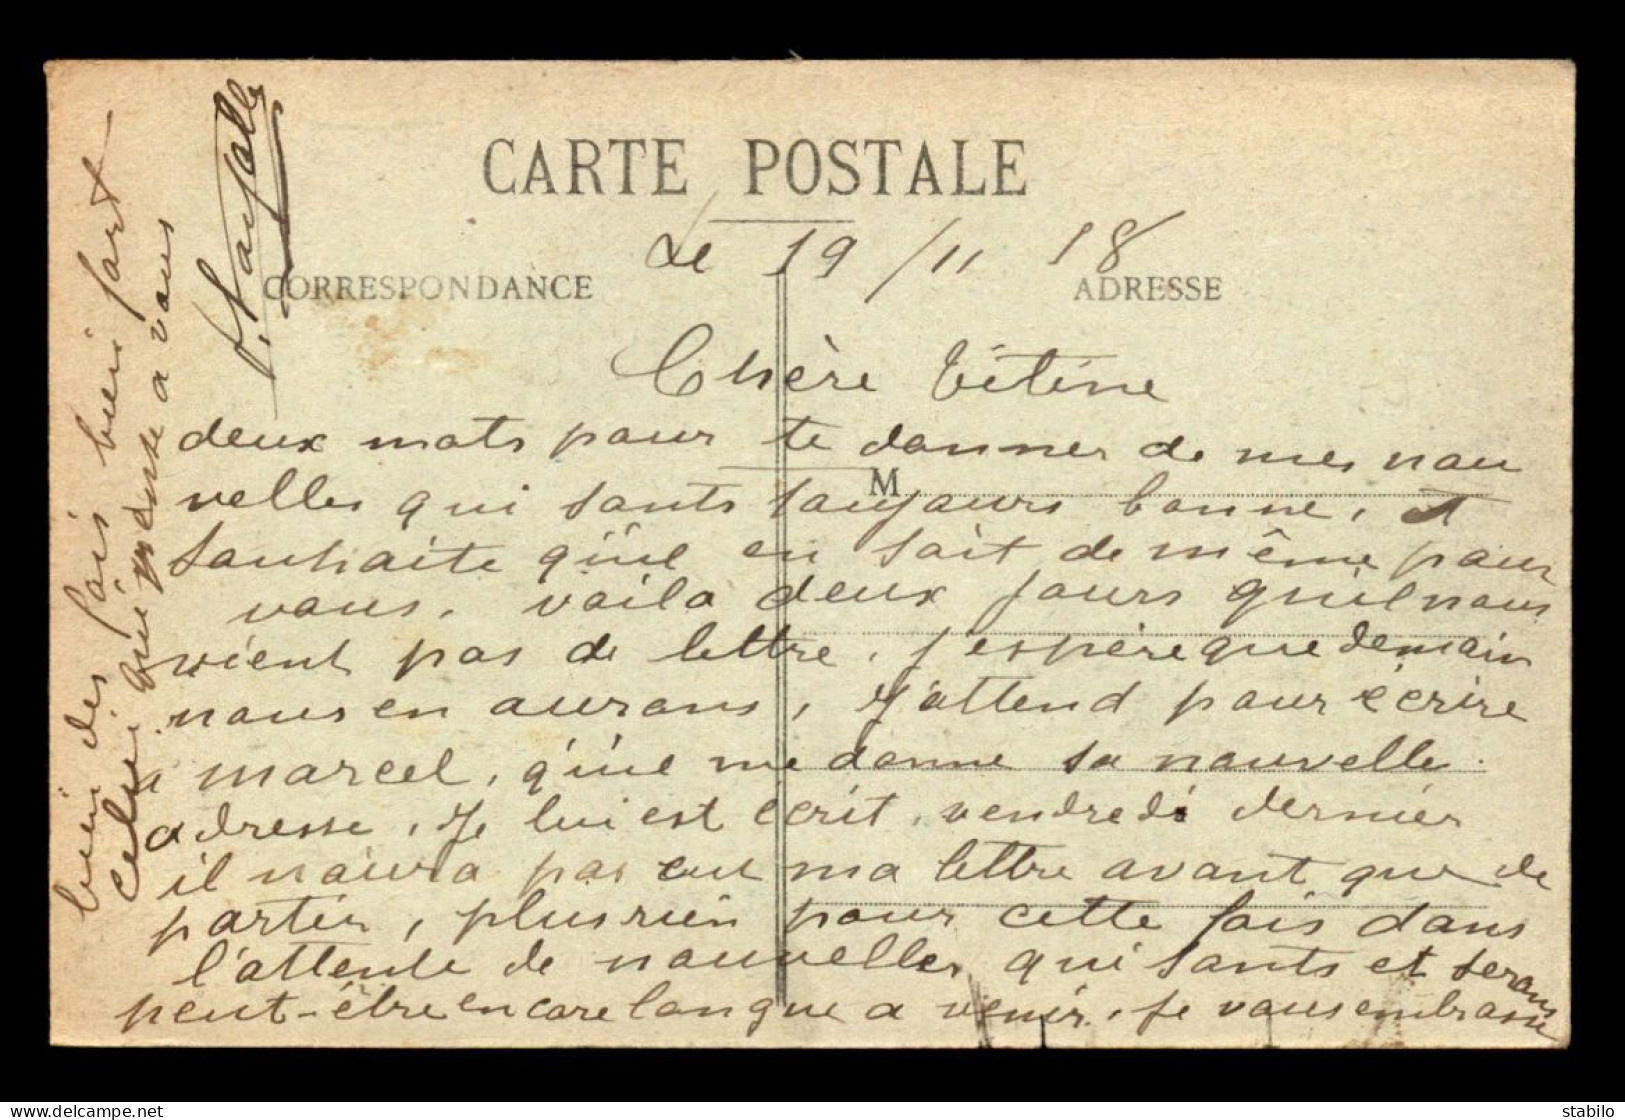 CARTE POSTALE
Le 19/11 18
CORRESPONDANCE
ADRESSE
Chère Titine
deux mots pour te donner de mes nou
M
velles qui sonts toujours bonne, et
souhaite qu'il en soit de même pour
vous, voila deux jours qu'il nous
vient pas de lettre, j'espère que demain
nous en aurons, j'attend pour écrire
a marcel, qu'il me donne sa nouvelle
adresse, Je lui est écrit, vendredi dernier
il n'aura pas eut ma lettre avant que de
partir, plus rien pour cette fois dans
l'attente de nouvelles qui sonts et serons
peut-être encore longue a venir, Je vous embrasse
bien des fois bien fort
celui qui pense a vous
delcampe.net
stabilo